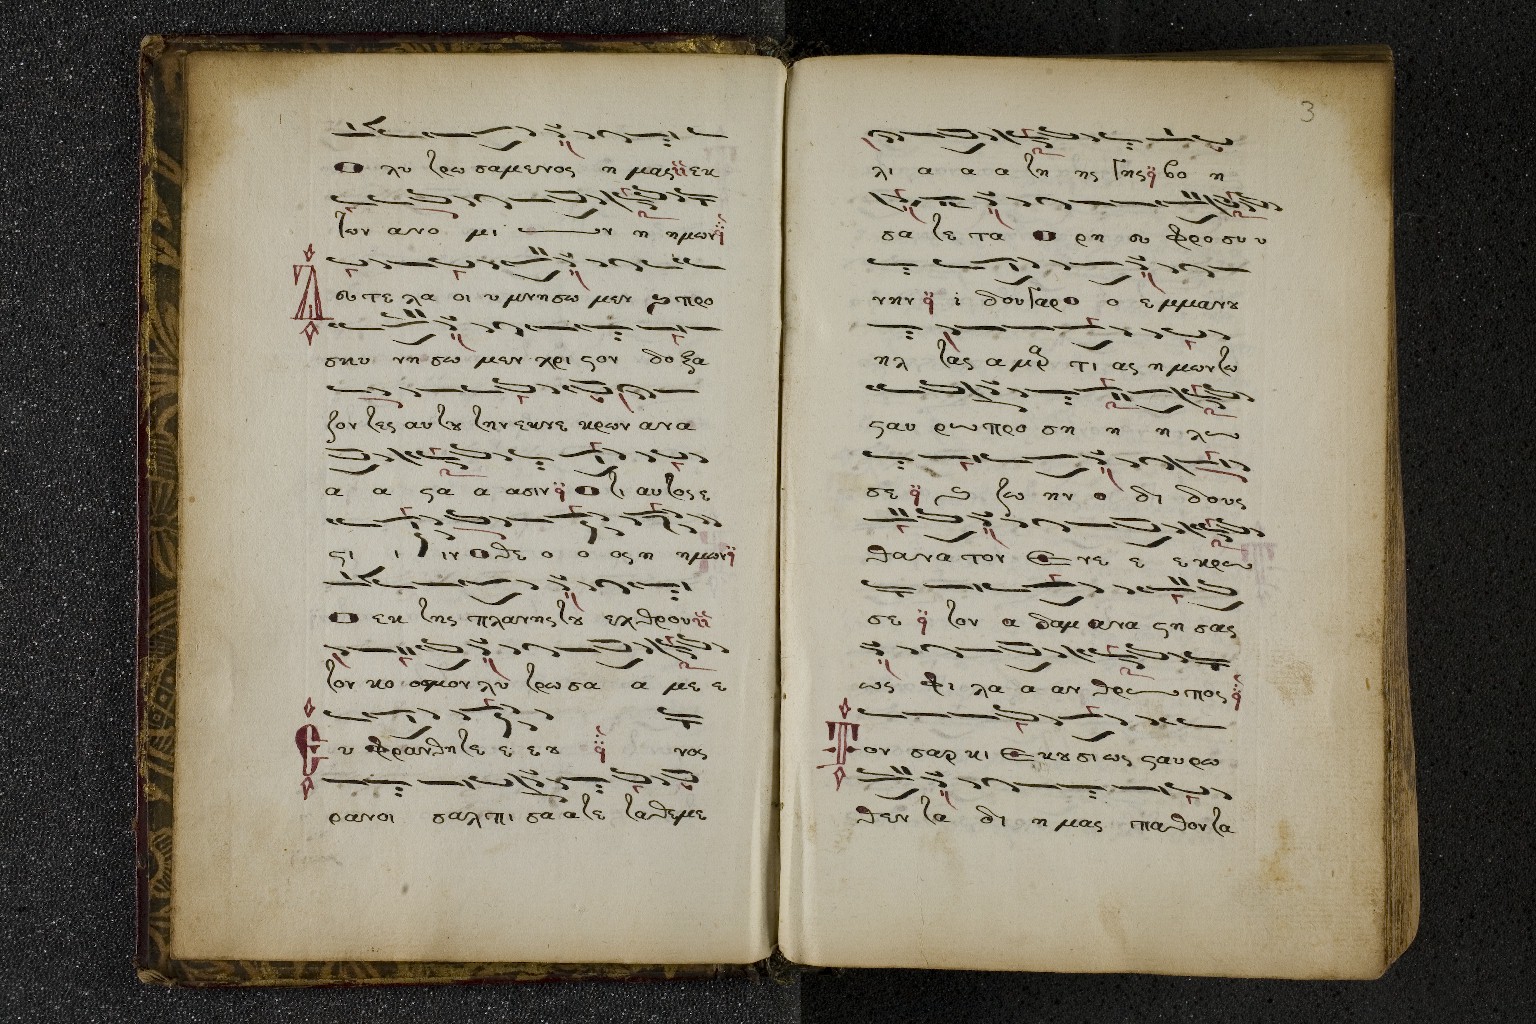 Ο λυ τρω σαμενος η μας εκ
των ανο μι ων η ημων
Δ ευτε λα οι υ μνησω μεν ϗ προ
σκυ νησω μεν χρι ϛον δο ξα
ζον τες αυτȣ την εκνε κρων ανα
α α ϛα α ασιν Οτι αυτος ε
ϛι ι ιν Ο θε ο ο ος η ημων
Ο εκ της πλανης τȣ εχθρου
τον κο οσμον λυ τρω σα α με ε
νος
Ε υ φρανθητε ε ε ȣ
ρανοι σαλπι σα ατε τα θεμε
3
λι α α α τη ης γης βο η
σα τε τα Ο ρη ευ φροσυ υ
νην ι δου γαρ ο ο ε μμανȣ
ηλ τας α μαρ τι ας ημων τω
ϛαυ ρω προ ση η η λω
σε ϗ ζω ην ο δι δους
θανατον Ε νε ε εκρω
σε τον α δαμ ανα ϛη σας
ως φι λα α αν θρω ωπος
Τ ον σαρκι Εκȣσιως ϛαυρω
θεν τα δι η μας παθοντα